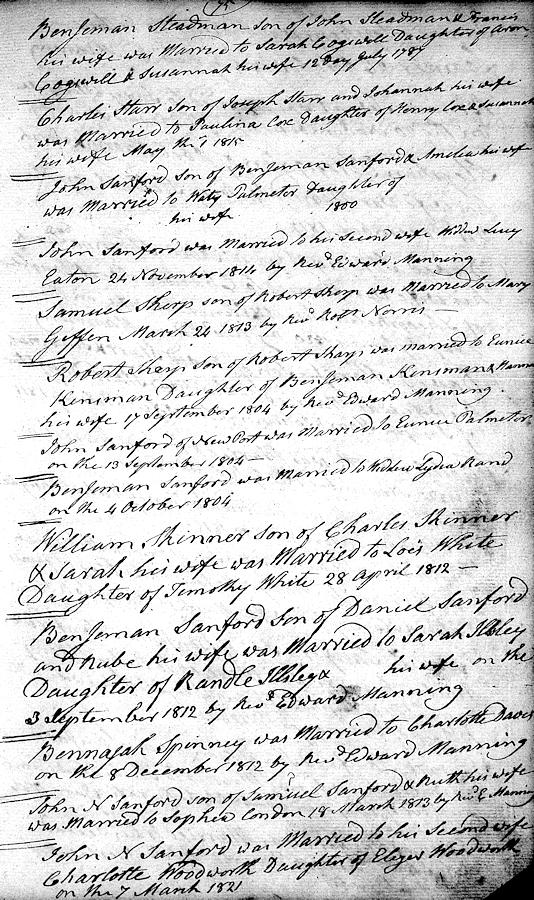 75
BenJeman Steadman son of John Steadman & Francis
his wife was Married to Sarah Cogswell Daughter of Aron
Cogswell & Susannah his wife 12 day July 1787
Charles Starr son of Joseph Starr and Johannah his wife
was Married to Paulina Cox Daughter of Henry Cox & Susannah
his wife May the 1 1815
John Sanford son of BenJeman Sanford & Amelia his wife
was Married to Waty Palmeter Daughter of
his wife 1800
John Sanford was Married to his Second wife Widow Lucy
Eaton 24 November 1814 by Revd Edward Manning
Samuel Sharp son of Robert Sharp was Married to Mary
Geffen March 24 1813 by Revd Robt Norris
Robert Sharp son of Robert Sharp was married to Eunice
Kensman Daughter of BenJeman Kensman & Hannah
his wife 17 September 1804 by Revd Edward Manning
John Sanford of New Port was Married to Eunice Palmeter
on the 13 September 1804
BenJeman Sanford was Married to Widow Lydia Rand
on the 4 October 1804
William Skinner son of Charles Skinner
& Sarah his wife was Married to Lois White
Daughter of Timothy White 28 April 1812
BenJeman Sanford son of Daniel Sanford
and Rube his wife was Married to Sarah Illsley
Daughter of Randle Illsley & his wife on the
3 September 1812 by Revd Edward Manning
Bennajah Spinney was Married to Charlotte Davis
on the 8 December 1812 by Revd Edward Manning
John N Sanford son of Samuel Sanford & Ruth his wife
was Married to Sophia London 18 March 1813 by Revd E Manning
John N Sanford was Married to his Second wife
Charlotte Woodworth Daughter of Woodworth
on the 7 March 1821